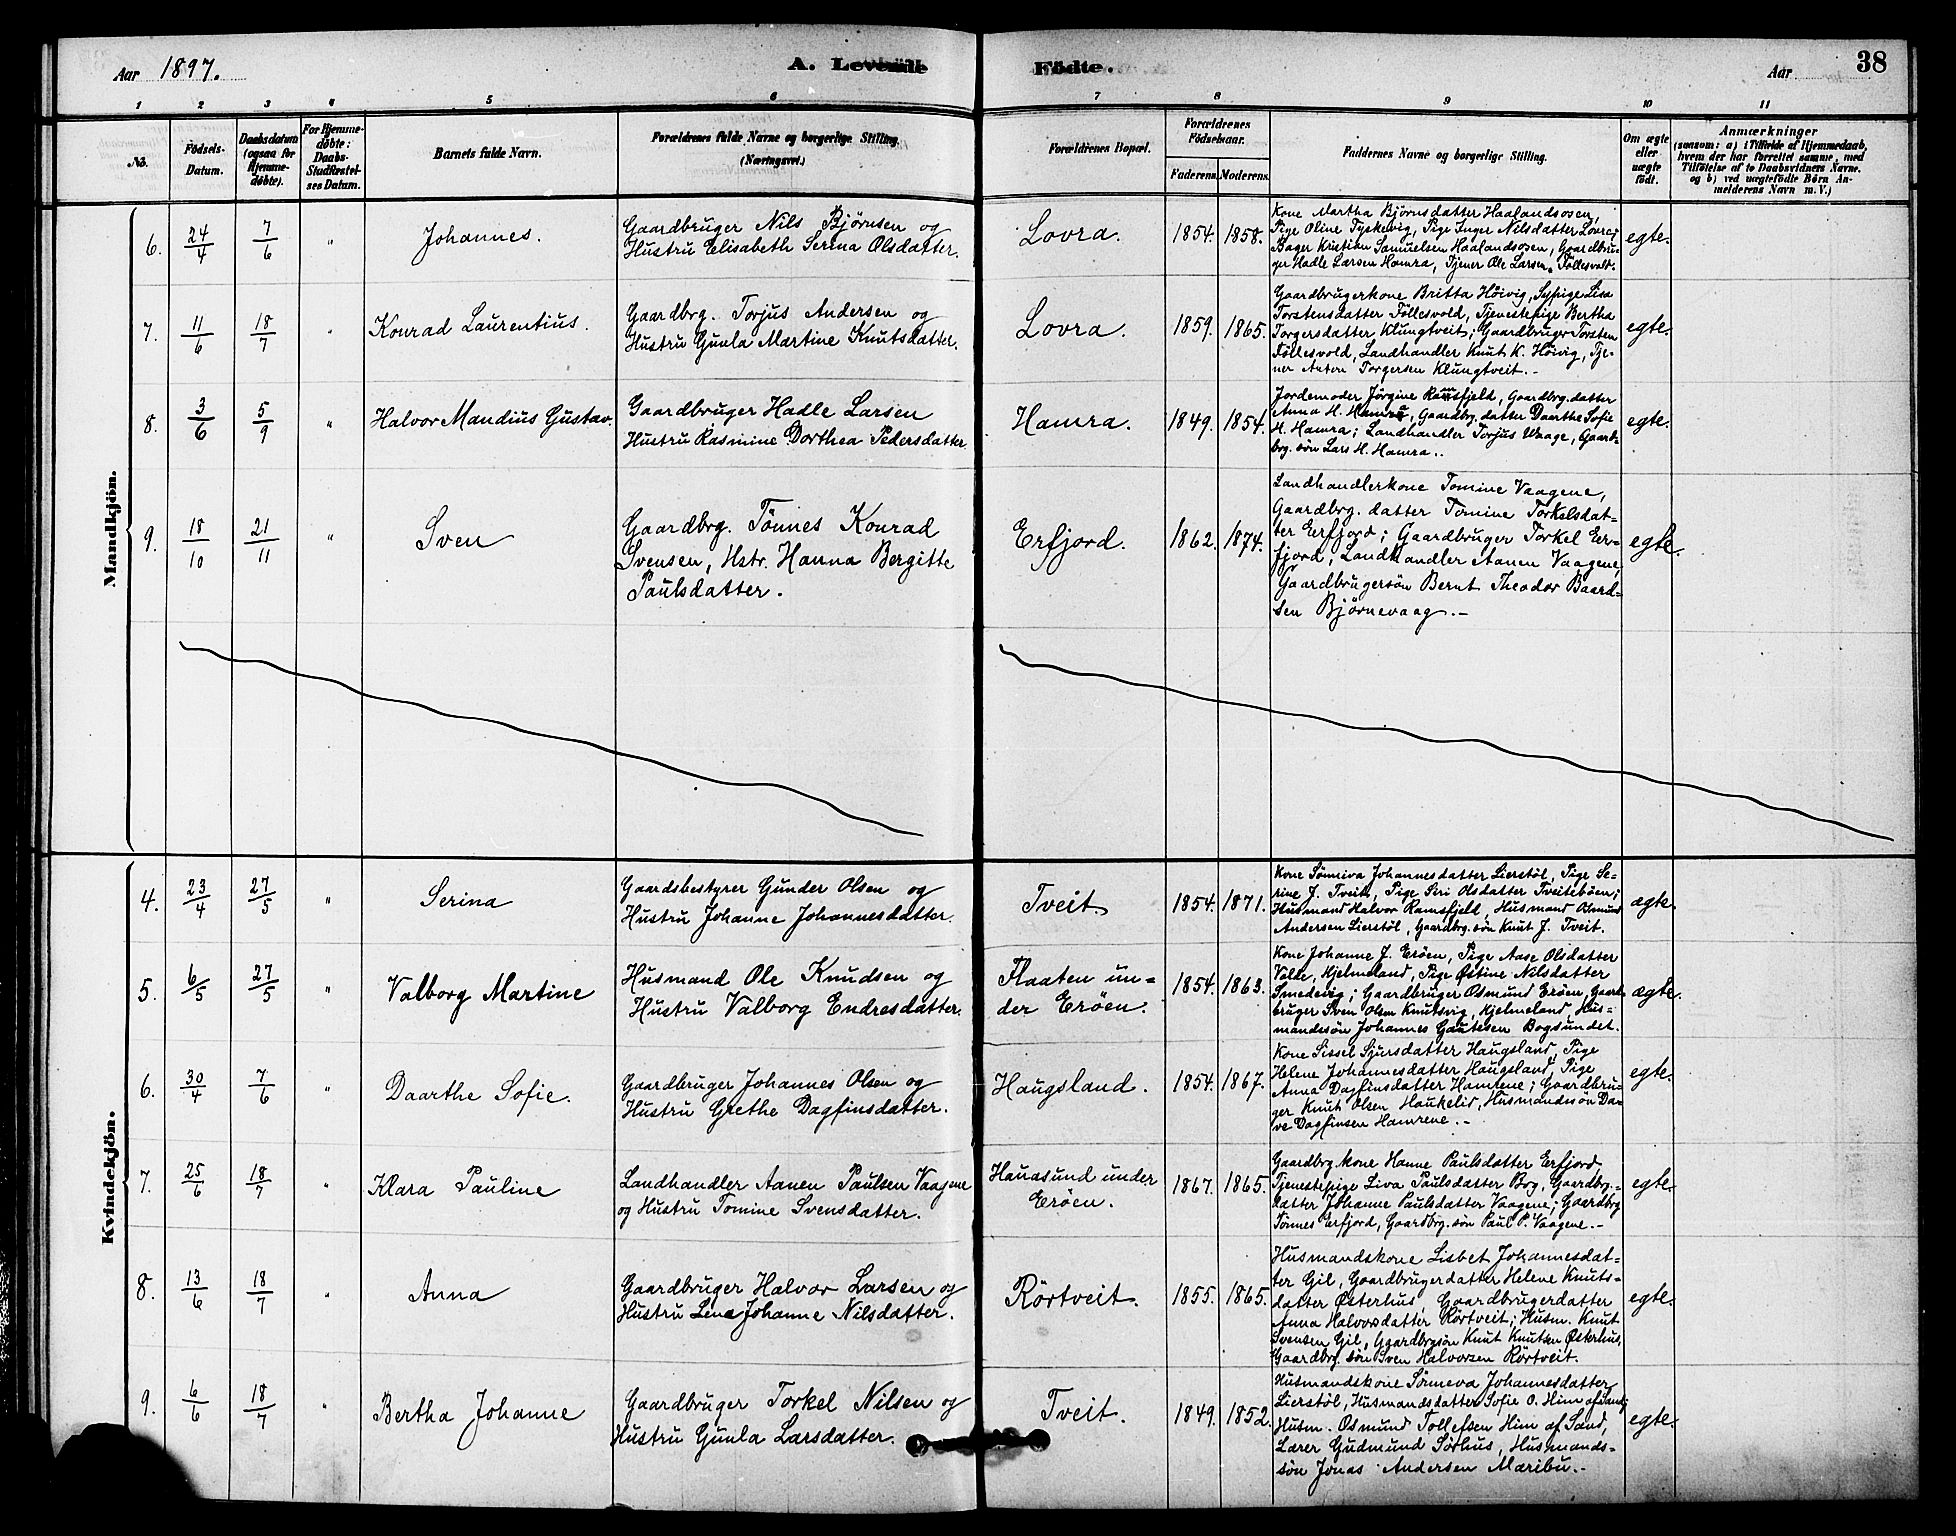 Aar 1897.
A. Levende Födte.
Aar
38
1 2 3 4 5 6 7 8 9 10 11
No.
Födsels-
Datum.
Daabsdatum
(ogsaa for
Hjemme-
döbte).
For Hjemme-
döbte:
Daabs-
Stadfæstel-
ses Datum.
Barnets fulde Navn.
Forældrenes fulde Navne og borgerlige Stilling.
(Næringsvei.)
Forældrenes Bopæl.
Forældrenes
Födselsaar.
Faderens.
Moderens.
Faddernes Navne og borgerlige Stilling.
Om ægte
eller
uægte
födt.
Anmærkninger
(saasom: a) i Tilfælde af Hjemmedaab,
hvem der har forrettet samme, med
Tilföielse af to Daabsvidners Navne.
og b) ved uægtefödte Börn An-
melderens Navn m. V.)
Mandkjön.
6. 24/4 7/6 " Johannes.
Gaardbruger Nils Bjørnsen og
Hustru Elisabeth Serina Olsdatter.
Lovra. 1854. 1858.
Kone Martha Bjørnsdatter Haalandsosen,
Pige Oline Tyskevig, Pige Inger Nilsdatter Lovra;
Bager Kristian Samuelsen Haalandsosen, Gaardbru-
ger Hadle Larsen Hamra, Tjener Ole Larsen Föllesvold.
egte.
7. 11/6 18/7 " Konrad Laurentius.
Gaardbrg. Torjus Andersen og
Hustru Gunla Martine Knutsdatter.
Lovra. 1859. 1865.
Gaardbrugerkone Britta Höivig, Sypige Lisa
Torstensdatter Föllesvold, Tjenestepige Bertha
Torgersdatter Klungtveit; Gaardbruger Torsten
Föllesvold, Landhandler Knut K. Höivig, Tje-
ner Anton Torgersen Klungtveit.-
egte.
8. 3/6 5/9 " Halvor Mandius Gustav.
Gaardbruger Hadle Larsen
Hustru Rasmine Dorthea Pedersdatter
Hamra. 1849. 1854.
Jordemoder Jörgine Ramsfjeld, Gaardbrg. datter
Anna H. Hamra, Gaardbrg. datter Daarthe Sofie
H. Hamra; Landhandler Torjus Waage, Gaard-
brg. sön Lars H. Hamra..
egte.
9. 18/10 21/11 " Sven
Gaardbrg. Tönnes Konrad
Svensen, Hstr. Hanna Bergitte
Paulsdatter.
Erfjord. 1862. 1874.
Landhandlerkone Tomine Vaagene,
Gaardbrg. datter Tomine Torkelsdat-
ter Erfjord; Gaardbruger Torkel Er-
fjord, Landhandler Aanen Vaagene,
Gaardbrugersön Bernt Theodor Baard-
sen Bjørnevaag.-
egte.
Kvindekjön.
4. 23/4 27/5 " Serina
Gaardsbestyrer Gunder Olsen og
Hustru Johanne Johannesdatter.
Tveit. 1854. 1871.
Kone Sönniva Johannesdatter Lierstöl, Pige Se-
rine J. Tveit, Pige Siri Olsdatter Tveiteböen;
Husmand Halvor Ramsfjeld, Husmand Osmund
Andersen Lierstöl, Gaardbrg. sön Knut J. Tveit.
ægte.
5. 6/5 27/5 " Valborg Martine
Husmand Ole Knudsen og
Hustru Valborg Endresdatter.
Flaaten un-
der Eröen. 1854. 1863.
Kone Johanne J. Eröen, Pige Aase Olsdatter
Valle, Hjelmeland, Pige Østine Nilsdatter
Smedvig; Gaardbruger Osmund Eröen, Gaard-
bruger Sven Olsen Knutsvig, Hjelmeland, Hus-
mandssön Johannes Gautesen Bogsundet.
ægte.
6. 30/4 7/6 " Daarthe Sofie.
Gaardbruger Johannes Olsen og
Hustru Grethe Dagfinsdatter.
Haugsland. 1854. 1867.
Kone Sissel Sjursdatter Haugsland, Pige
Helene Johannesdatter Haugsland, Pige
Anna Dagfinsdatter Hamrene; Gaardbru-
ger Knut Olsen Haukelid, Husmandssön Da-
ve Dagfinsen Hamrene.-
egte.
7. 25/6 18/7 " Klara Pauline
Landhandler Aanen Paulsen Vaagene
og Hustru Tomine Svensdatter.
Hauasund under
Eröen. 1867. 1865.
Gaardbrg. kone Hanne Paulsdatter Erfjord,
Tjenestepige Liva Paulsdatter Bog, Gaardbrg.-
datter Johanne Paulsdatter Vaagene; Gaardbrg
Tönnes Erfjord, Gaardbrg. sön Paul P. Vaagene.-
egte.
8. 13/6 18/7 " Anna
Gaardbruger Halvor Larsen og
Hustru Lena Johanne Nilsdatter.
Rörtveit. 1855. 1865.
Husmandskone Lisbet Johannesdat-
ter Gil, Gaardbrugerdatter Helene Knuts-
datter Østerhus, Gaardbrugerdatter
Anna Halvorsdatter Rörtveit; Husm. Knut
Svensen Gil, Gaardbrgsön Knut Knutsen Østerhus,
Gaardbrg. sön Sven Halvorsen Rörtveit.
egte.
9. 6/6 18/7 " Bertha Johanne
Gaardbruger Torkel Nilsen og
Hustru Gunla Larsdatter.
Tveit. 1849. 1852.
Husmandskone Sönneva Johannesdatter
Lierstöl, Husmandsdatter Sofie O. Him af Sand;
Husm. Osmund Tollefsen Him af Sand,
Lærer Gudmund Sörhus, Husmands-
sön Jonas Andersen Maribu.-
egte.